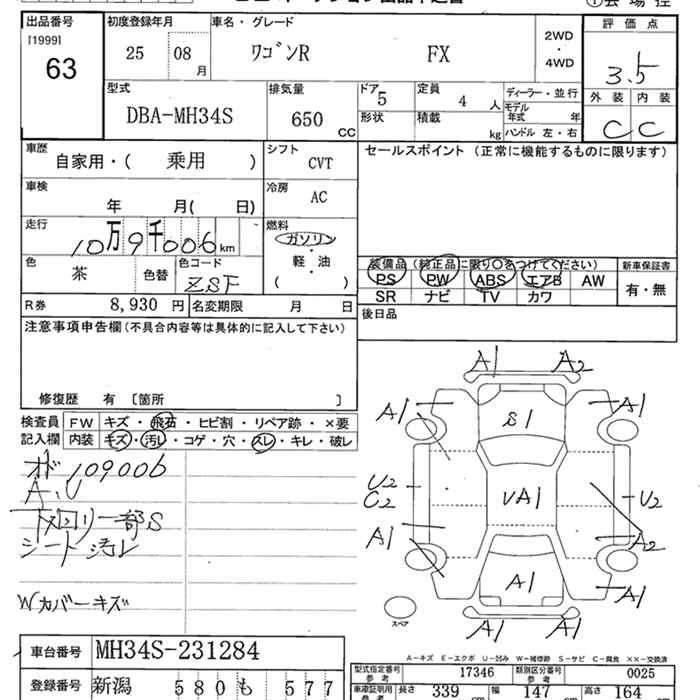 出品番号
[1999]
63
初度登録年月
25 08 月
車名・グレード
ワゴンR FX
2WD
・
4WD
評価点
3.5
外装 内装
C C
型式
DBA-MH34S
排気量
650 CC
ドア 5
定員 4 人
形状
積載 kg
ディーラー・並行
モデル年式 年
ハンドル 左・右
車歴
自家用・( 乗用 )
シフト
CVT
セールスポイント (正常に機能するものに限ります)
車検
年 月( 日)
冷房
AC
走行
10万9千006km
燃料
ガソリン
・
軽・油
( )
色 茶 色替
色コード
ZSF
装備品 (純正品に限り○をつけてください)
PS PW ABS エアB AW
SR ナビ TV カワ
新車保証書
有・無
R券 8,930 円
名変期限 月 日
後日品
注意事項申告欄(不具合内容等は具体的に記入して下さい)
修復歴 有 〔箇所 〕
検査員 記入欄
FW キズ・飛石・ヒビ割・リペア跡・×要
内装 キズ・汚レ・コゲ・穴・スレ・キレ・破レ
109006
A.U
下回リ一部S
シート汚レ
Wカバーキズ
A1 A2
A1 A1
S1
U2
C2
VA1
U2
A1 A2
A1 A1
A1 A1
スペア
A-キズ E-エクボ U-凹み W-補修跡 S-サビ C-腐食 ××-交換済
車台番号 MH34S-231284
登録番号 新潟 580 も 577
型式指定番号 参考 17346
類別区分番号 参考 0025
車庫証明用 参考
長さ 339 幅 147 高さ 164